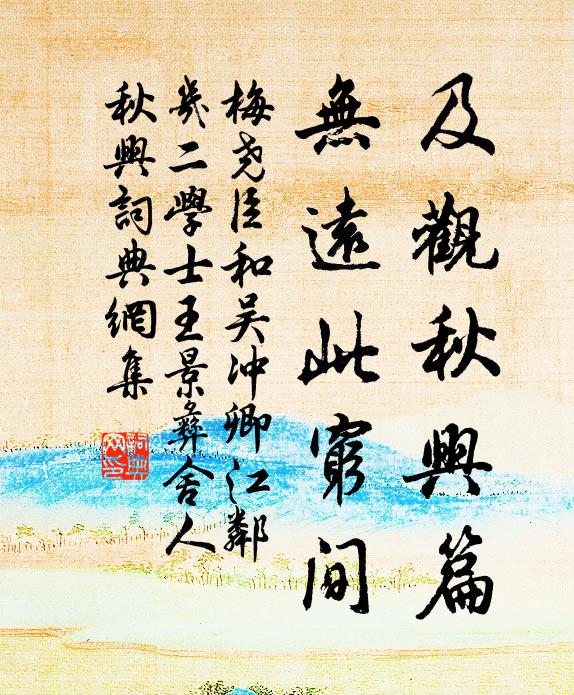 及觀秋興篇
無遠此窮間
梅尧臣和吴冲卿江鄰
幾二學士王景彝舍人
秋興詞典網集